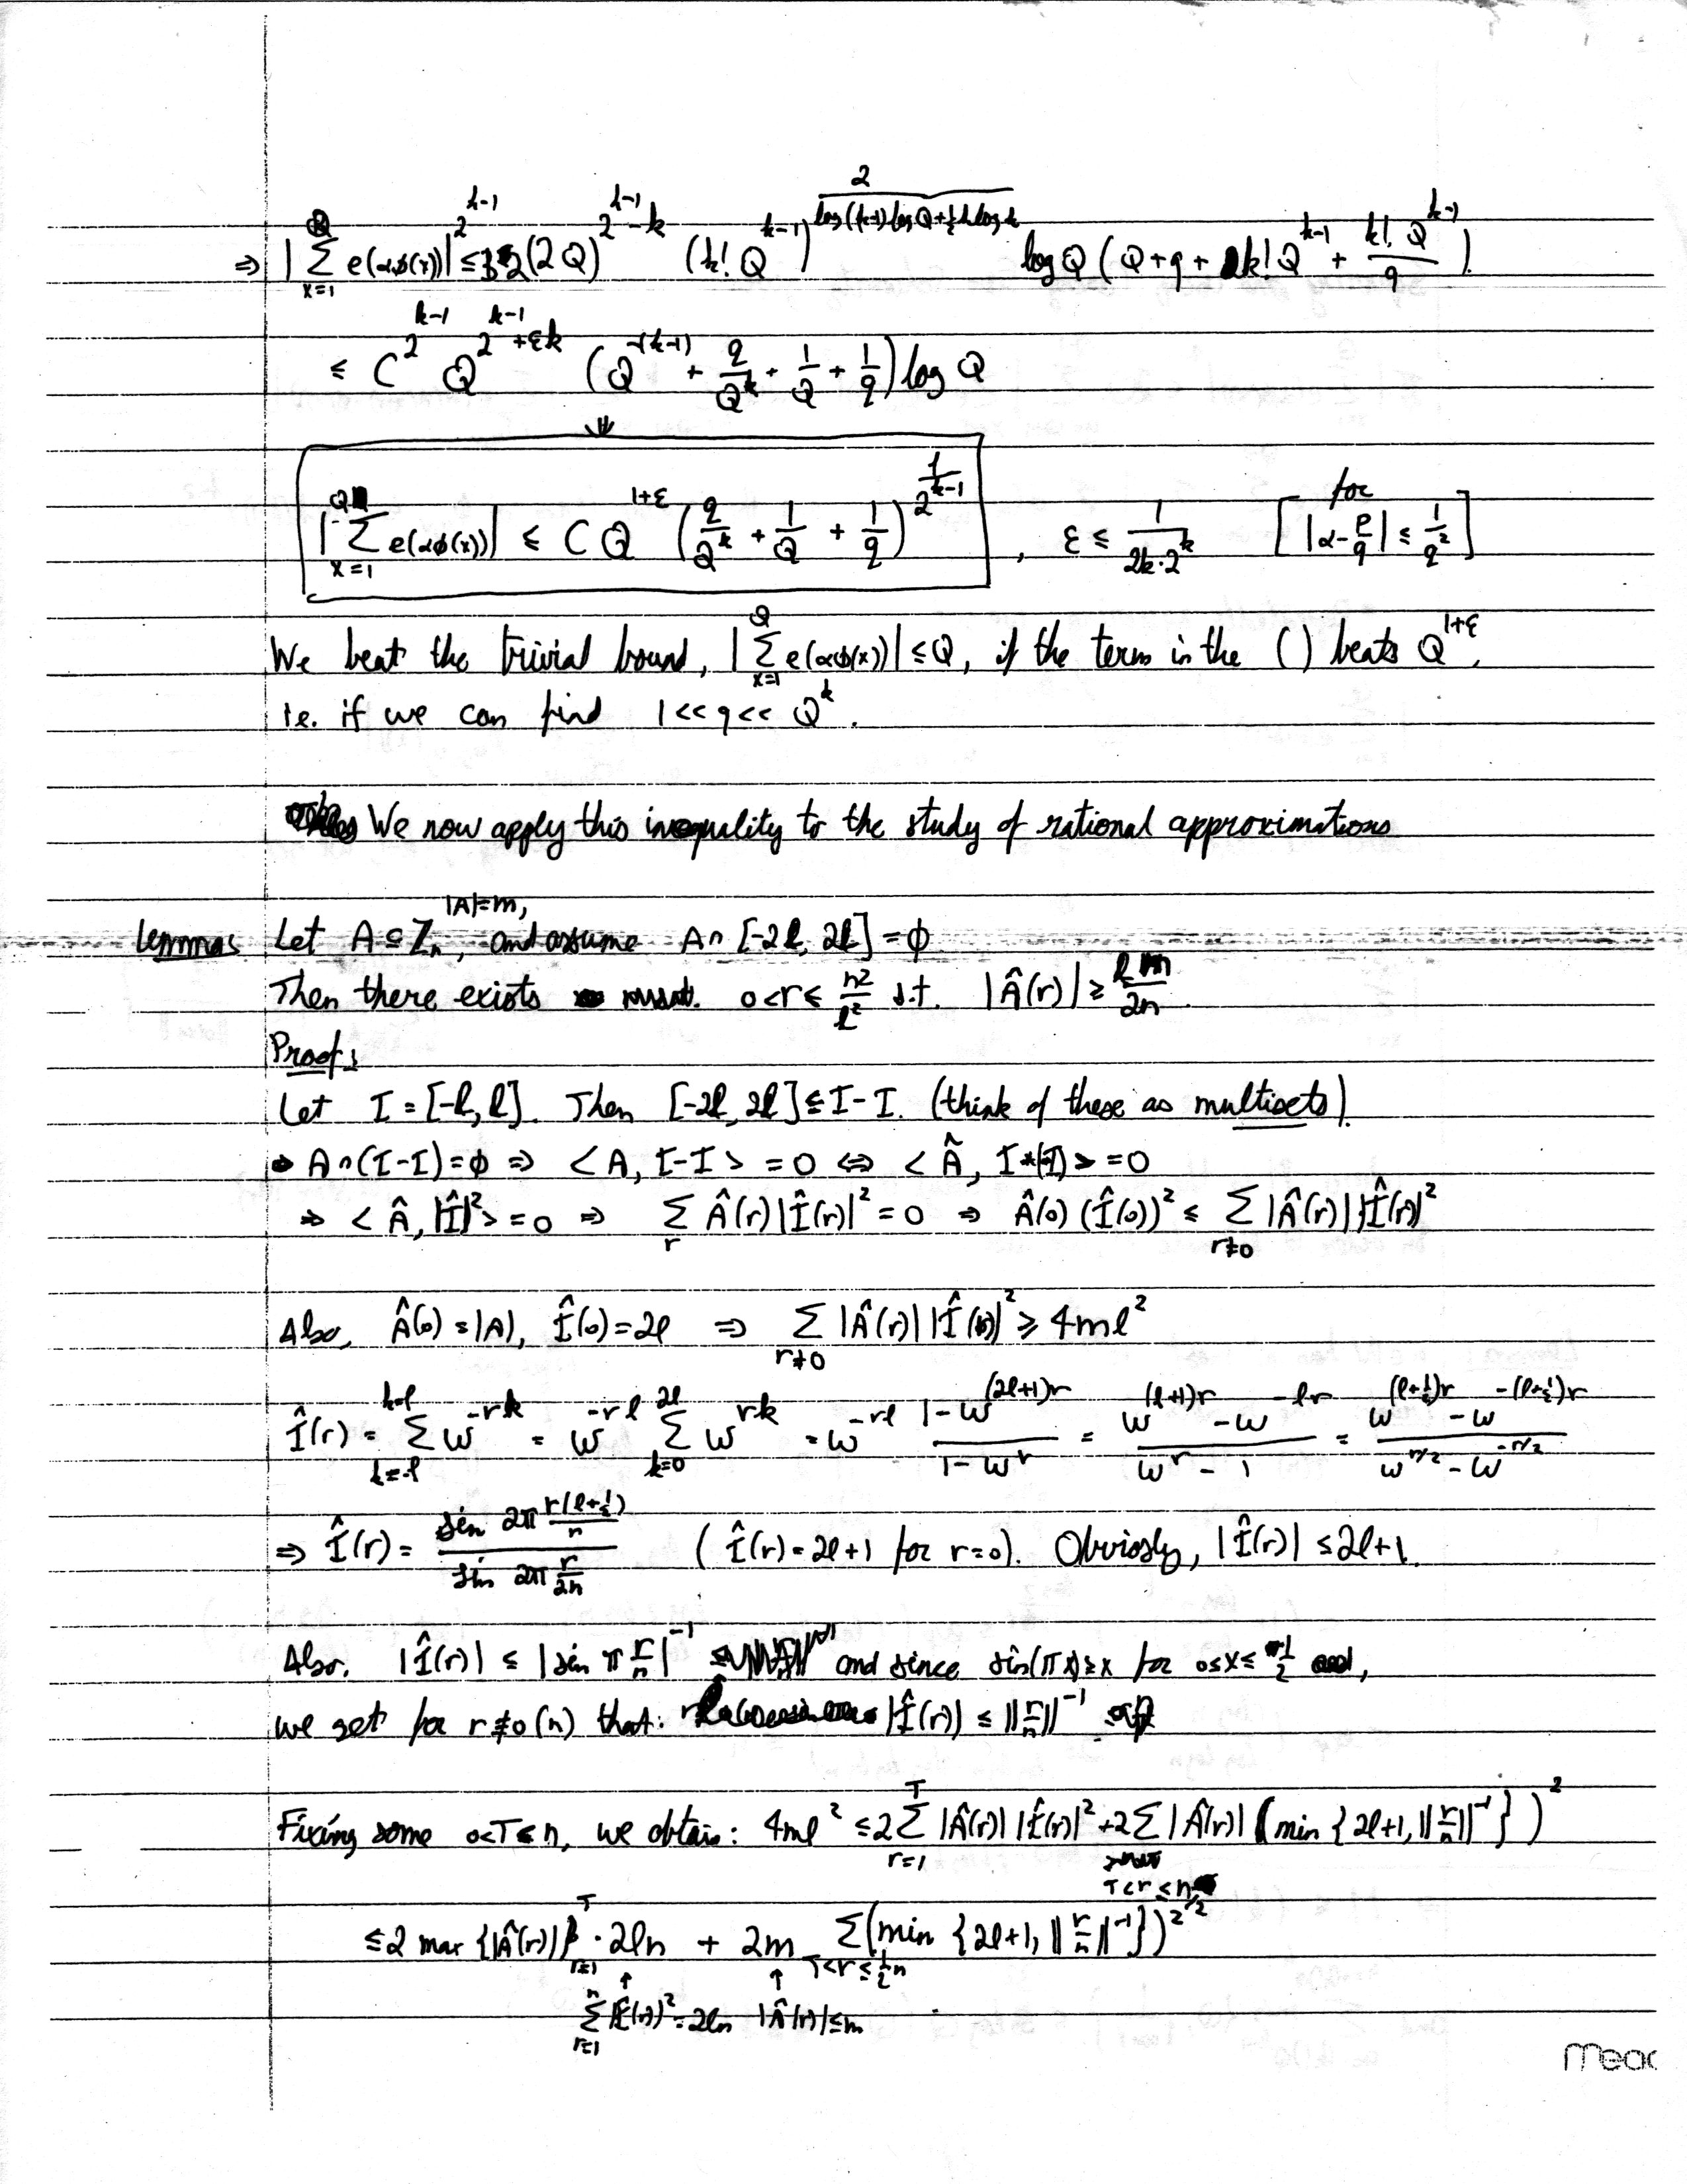 ⇒ |∑_{x=1}^{Q} e(αϕ(x))|^{2^{k-1}} ≤ 32(2Q)^{2^{k-1}-k} (k! Q^{k-1})^{\frac{2}{log((k-1)log Q+\frac{1}{2}k log k}} log Q (Q+q+2k! Q^{k-1} + \frac{k! Q^{k-1}}{q}).
≤ C^{2^{k-1}} Q^{2^{k-1}+εk} (Q^{-(k-1)} + \frac{q}{Q^k} + \frac{1}{Q} + \frac{1}{q}) log Q
⇓
|∑_{x=1}^{Q} e(αϕ(x))| ≤ C Q^{1+ε} (\frac{q}{Q^k} + \frac{1}{Q} + \frac{1}{q})^{\frac{1}{2^{k-1}}} , ε ≤ \frac{1}{2k·2^k} [for |α-\frac{p}{q}| ≤ \frac{1}{q^2}]
We beat the trivial bound, |∑_{x=1}^{Q} e(αϕ(x))| ≤ Q, if the term in the ( ) beats Q^{1+ε},
i.e. if we can find 1<<q<< Q^k.
We now apply this inequality to the study of rational approximations
Lemma: Let A⊆Z_n, |A|=m, and assume A∩[-2l, 2l]=ϕ
Then there exists 0<r≤ \frac{n^2}{l^2} s.t. |Â(r)| ≥ \frac{lm}{2n}.
Proof:
Let I=[-l, l]. Then [-2l, 2l]⊆I-I. (think of these as multisets).
⇒ A∩(I-I)=ϕ ⇒ <A, I-I> = 0 ⇔ <Â, I*(-I)> = 0
⇒ <Â, |Î|^2> = 0 ⇒ ∑_r Â(r)|Î(r)|^2 = 0 ⇒ Â(0)(Î(0))^2 ≤ ∑_{r≠0} |Â(r)||Î(r)|^2
Also, Â(0)=|A|, Î(0)=2l ⇒ ∑_{r≠0} |Â(r)||Î(r)|^2 ≥ 4ml^2
Î(r) = ∑_{k=-l}^{k=l} w^{-rk} = w^{-rl} ∑_{k=0}^{2l} w^{rk} = w^{-rl} \frac{1-w^{(2l+1)r}}{1-w^r} = \frac{w^{(l+1)r}-w^{-lr}}{w^r-1} = \frac{w^{(l+\frac{1}{2})r}-w^{-(l+\frac{1}{2})r}}{w^{r/2}-w^{-r/2}}
⇒ Î(r) = \frac{sin 2π\frac{r(l+\frac{1}{2})}{n}}{sin 2π\frac{r}{2n}} (Î(r)=2l+1 for r=0). Obviosly, |Î(r)| ≤ 2l+1.
Also, |Î(r)| ≤ |sin π\frac{r}{n}|^{-1} and since sin(πx)≥x for 0≤x≤\frac{1}{2},
we get for r≢0(n) that: |Î(r)| ≤ ||\frac{r}{n}||^{-1}
Fixing some 0<T≤n, we obtain: 4ml^2 ≤ 2∑_{r=1}^{T} |Â(r)||Î(r)|^2 + 2∑_{T<r≤n/2} |Â(r)| (min{2l+1, ||\frac{r}{n}||^{-1}})^2
≤ 2 max{|Â(r)|}_{r=1}^{T} · 2ln + 2m ∑_{T<r≤\frac{1}{2}n} (min{2l+1, ||\frac{r}{n}||^{-1}})^2
↑ ↑
∑_{r=1}^{n} |Î(r)|^2=2ln |Â(r)|≤m
Mea